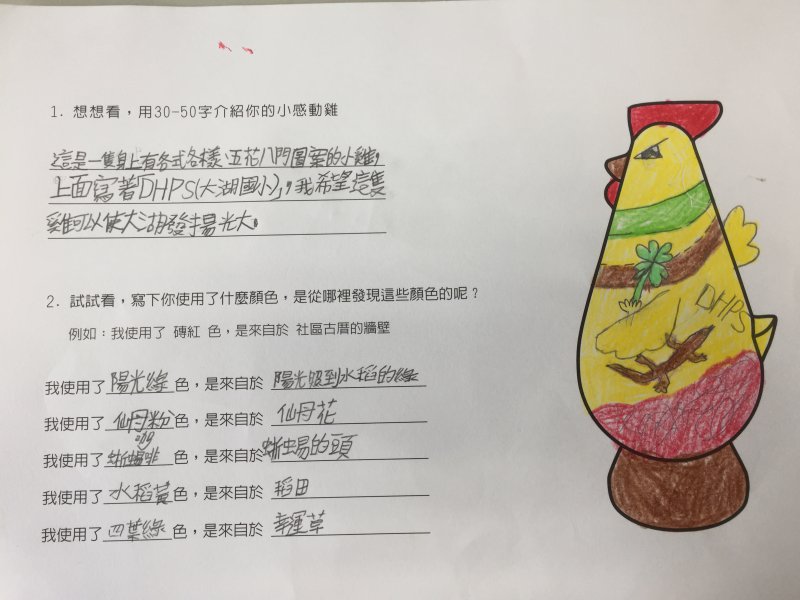 1. 想想看，用30-50字介紹你的小感動雞
這是一隻身上有各式各樣、五花八門圖案的小雞，
上面寫著「DHPS(大湖國小)」，我希望這隻
雞可以使大湖發揚光大。
2. 試試看，寫下你使用了什麼顏色，是從哪裡發現這些顏色的呢？
例如：我使用了 磚紅 色，是來自於 社區古厝的牆壁
我使用了陽光綠色，是來自於 陽光照到水稻的綠
我使用了仙丹粉色，是來自於 仙丹花
我使用了蜥蜴咖啡色，是來自於蜥蜴的頭
我使用了水稻黃色，是來自於 稻田
我使用了四葉綠色，是來自於 幸運草
DHPS